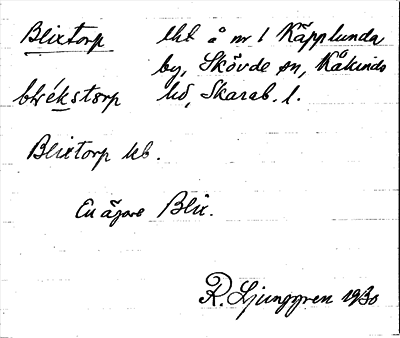 Blixtorp lht å nr 1 Käpplunda
by, Skövde sn, Kåkinds
blekstorp hd, Skarab. l.
Blixtorp kb.
En ägare Blix.
R. Ljunggren 1930